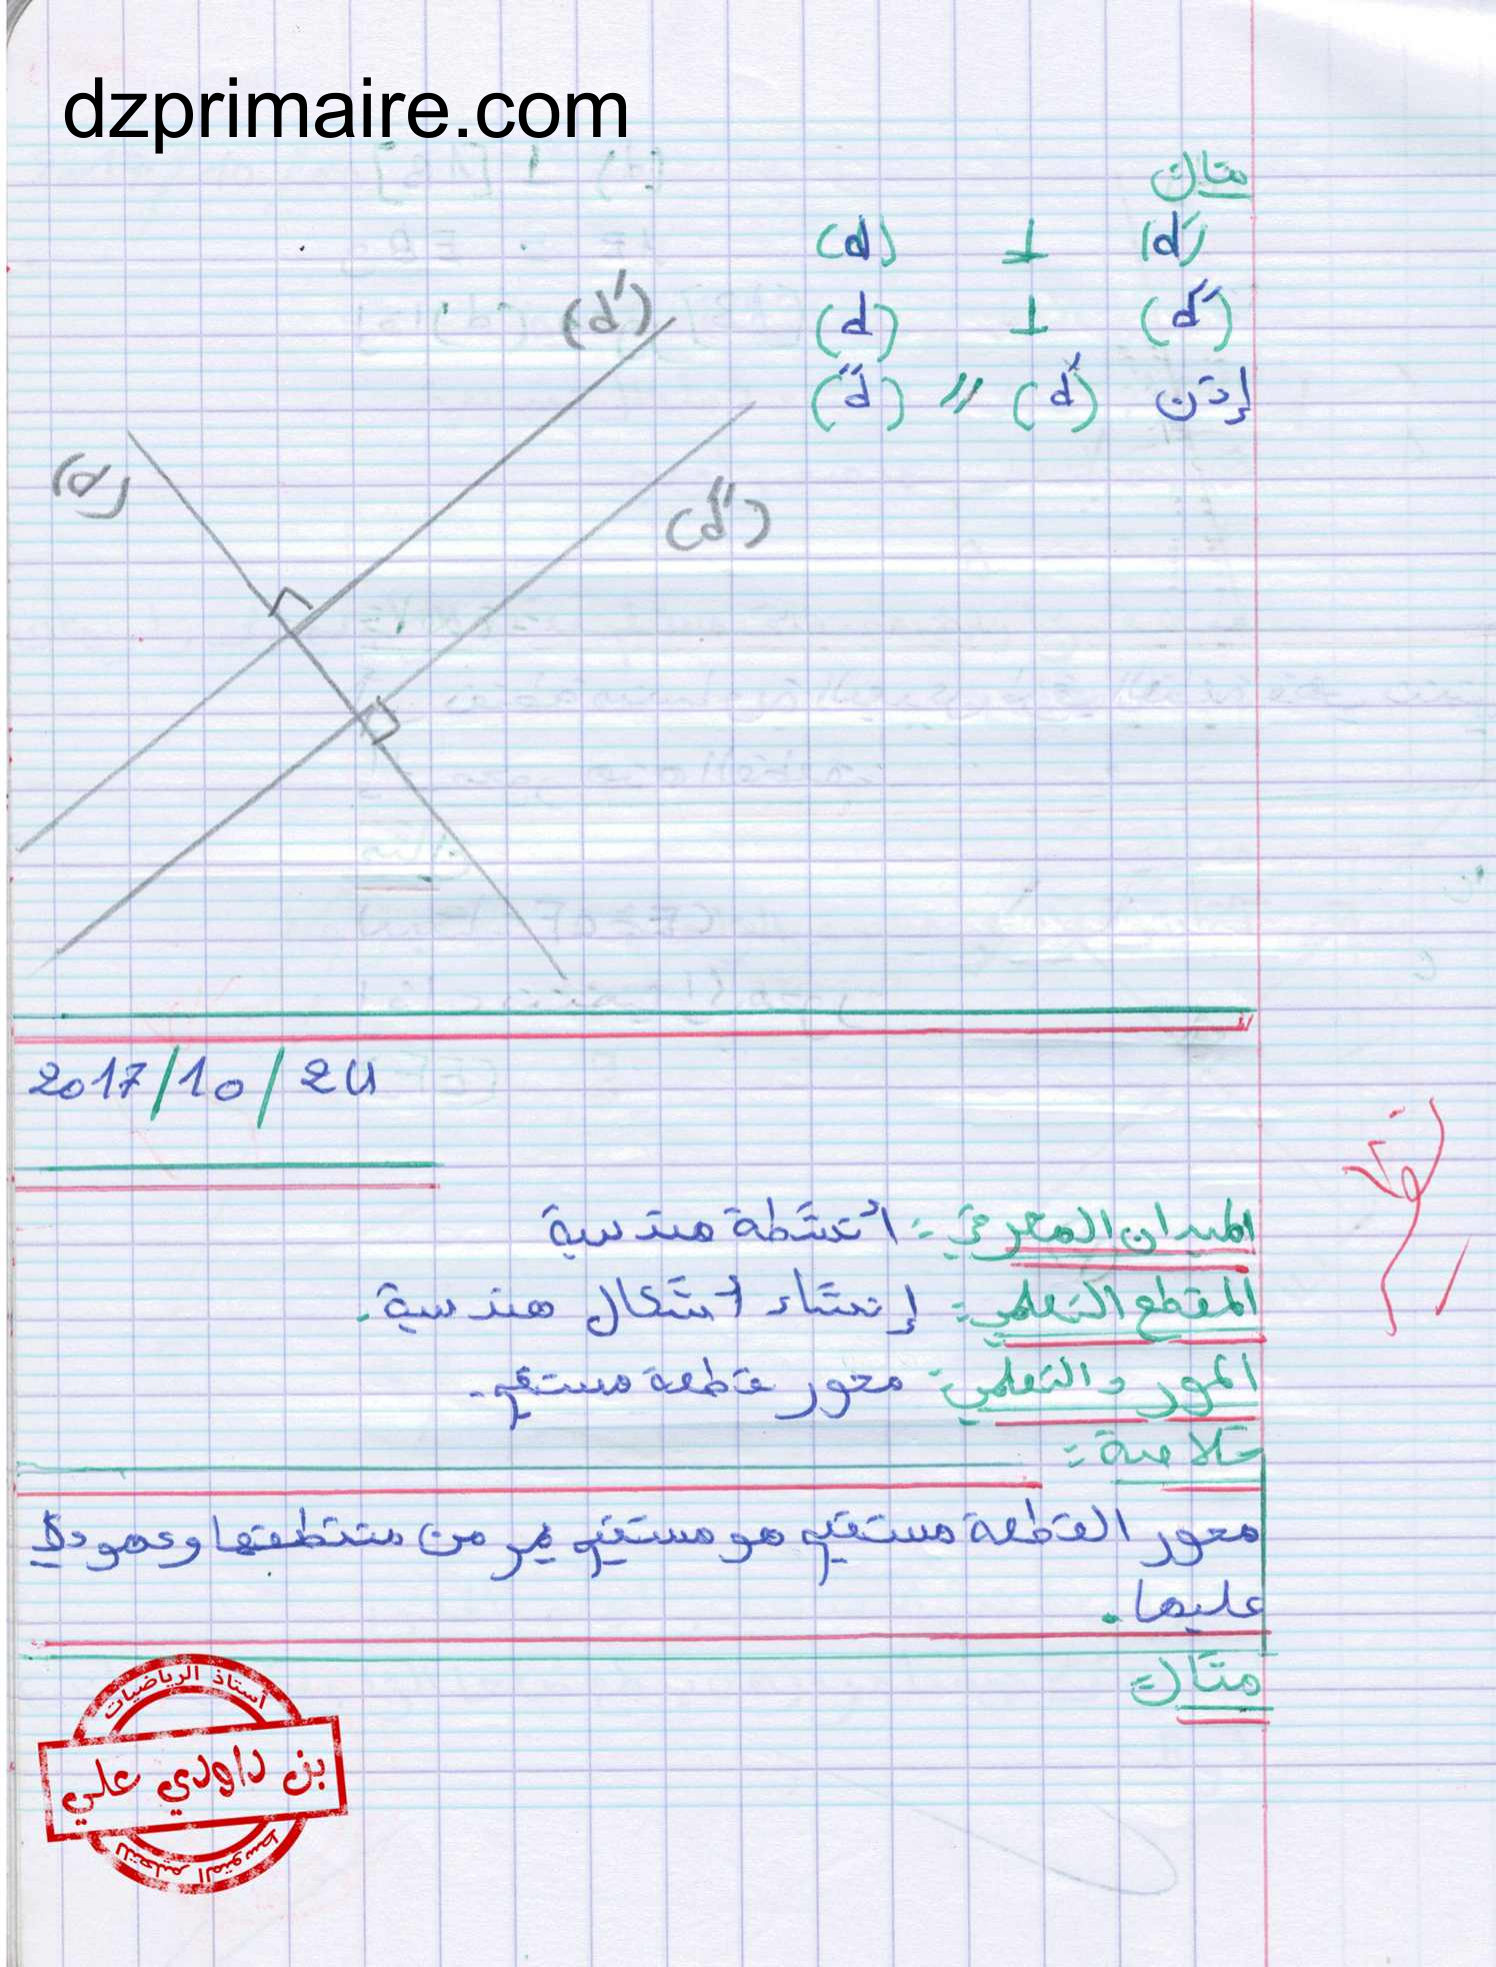 dzprimaire.com
مثال
(d) ⊥ (d')
(d) ⊥ (d'')
إذن (d') // (d'')
(d')
(d)
(d'')
2017/10/24
الميدان المعرفي: أنشطة هندسية
المقطع التعلمي: إنشاء أشكال هندسية.
المورد التعلمي: محور قطعة مستقيم.
خلاصة:
محور القطعة مستقيم هو مستقيم يمر من منتطفها وعمودي
عليها.
مثال:
أستاذ الرياضيات
بن داودي علي
للتعليم المتوسط